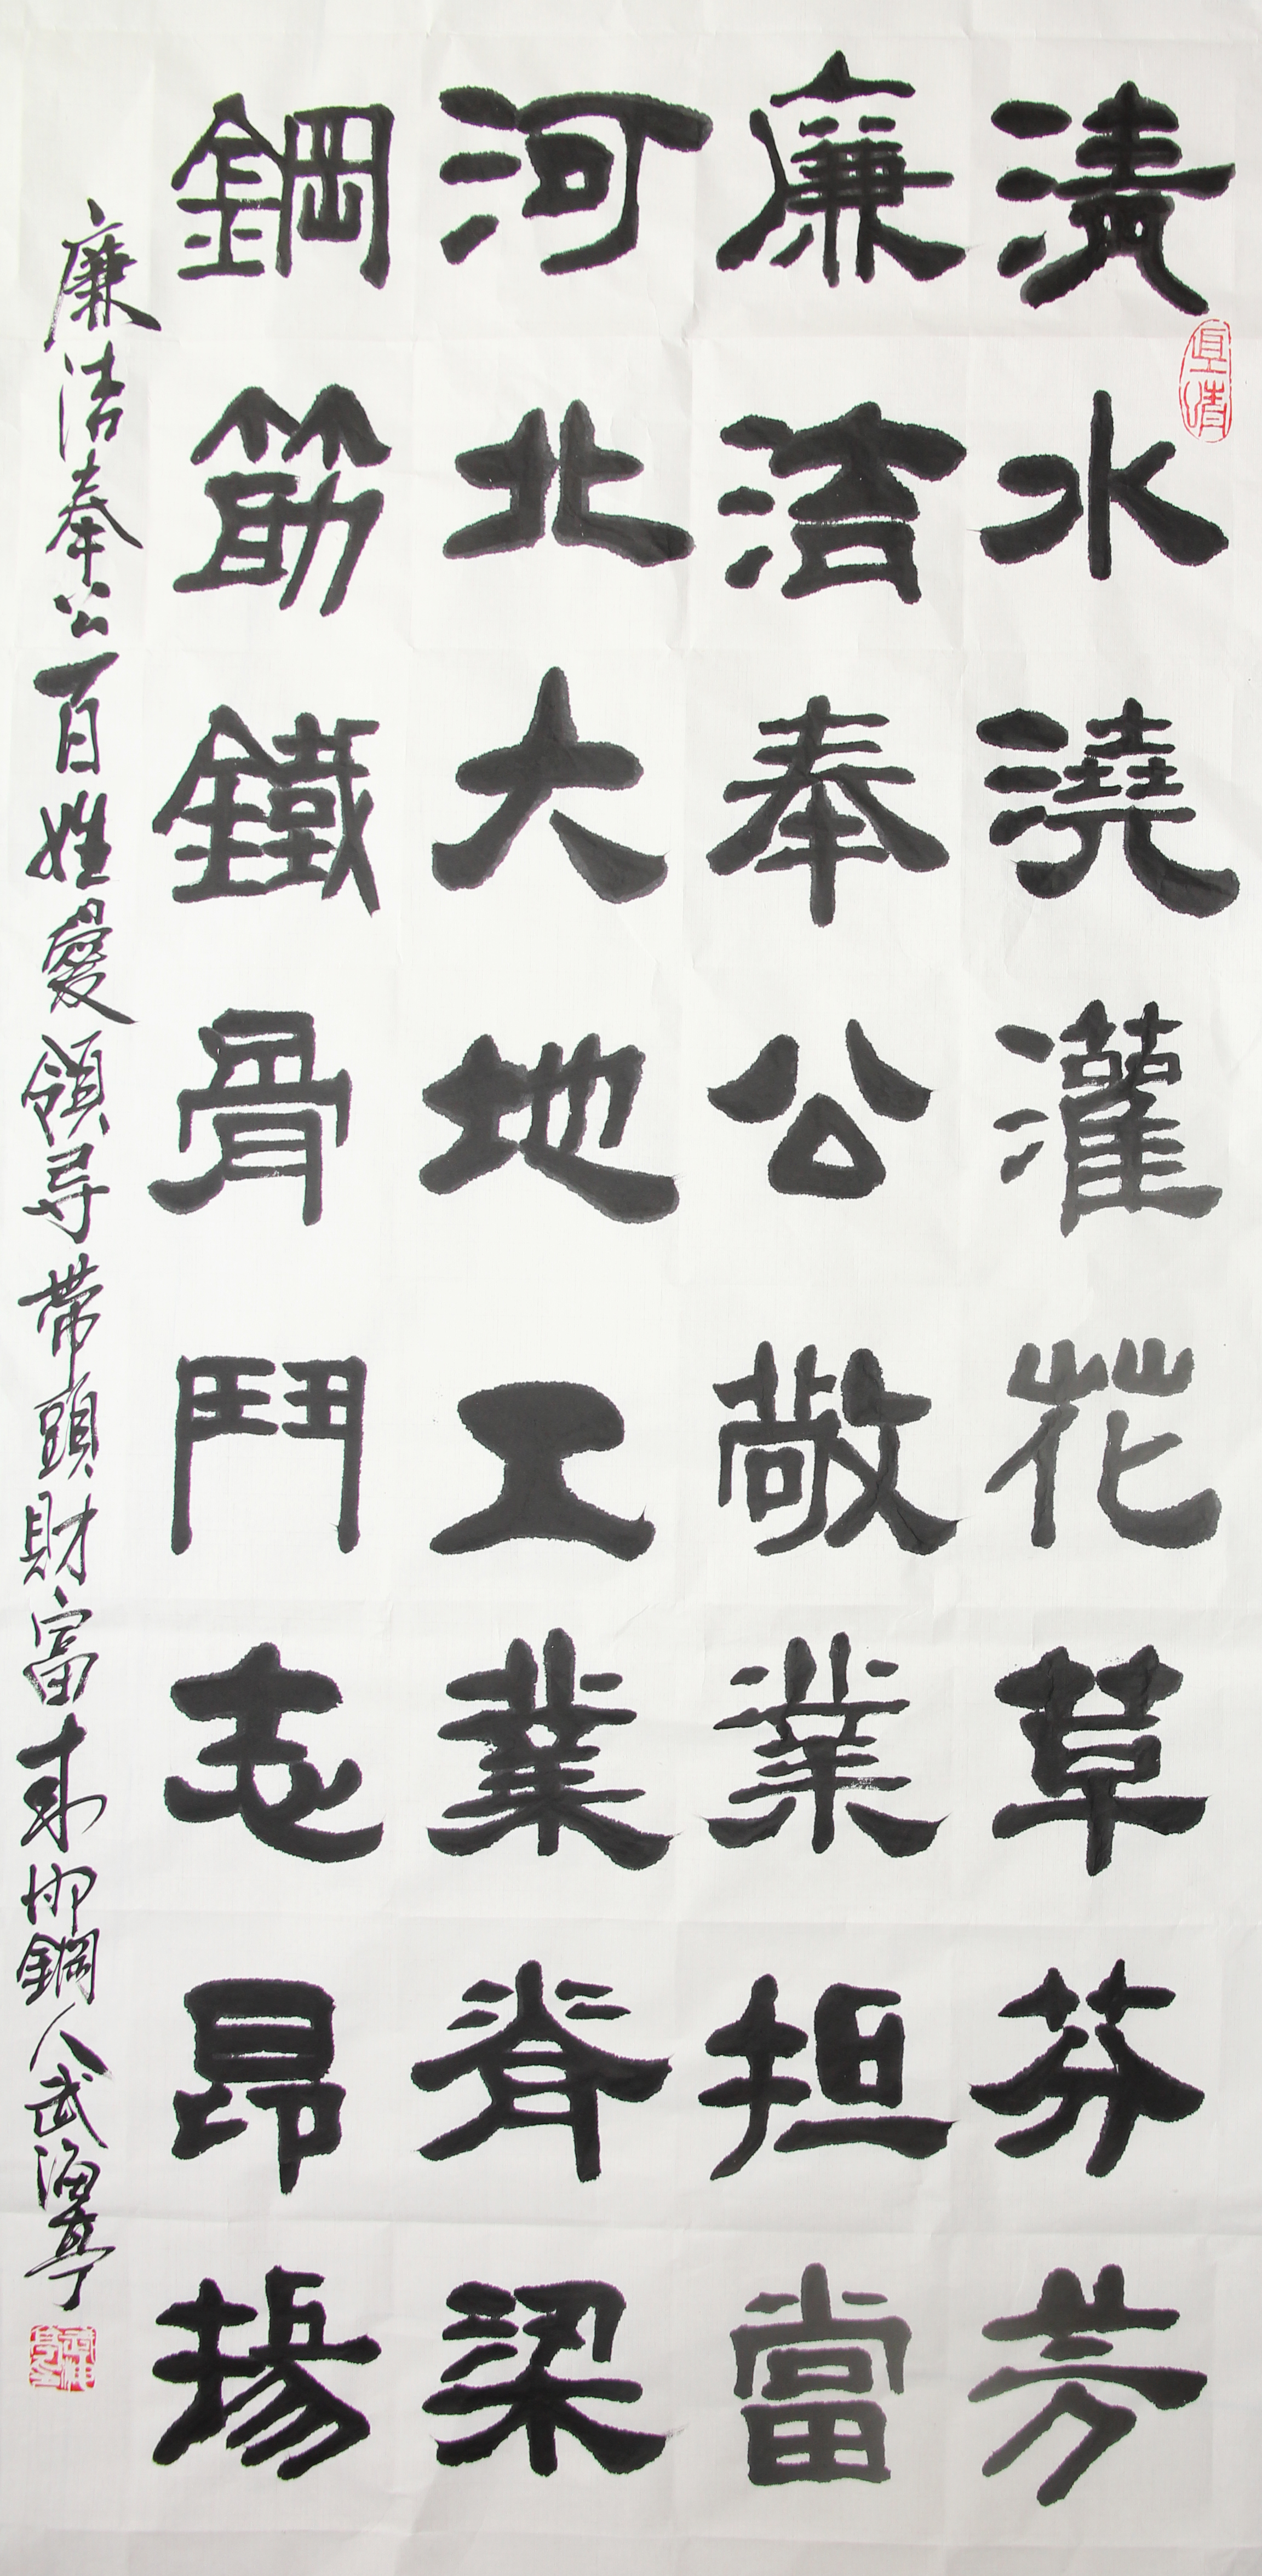 清水澆灌花草芬芳
廉洁奉公敬業担當
河北大地工業脊梁
鋼筋鐵骨鬥志昂揚
廉洁奉公百姓愛領导带頭財富来邯鋼人武海亭